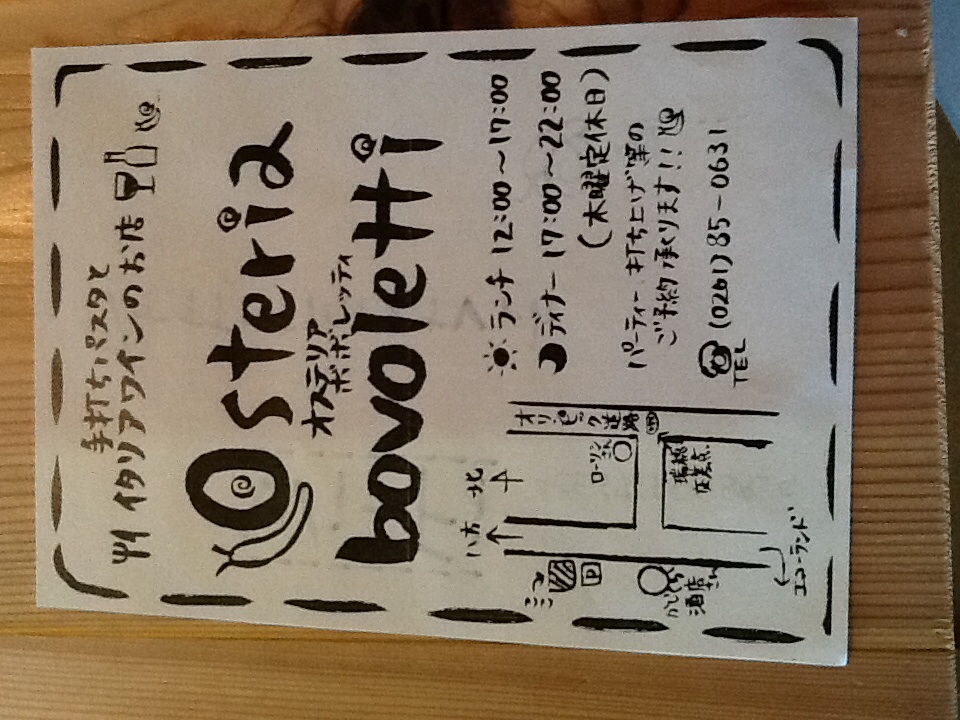 手打ちパスタと
イタリアワインのお店
Osteria
オステリア
ボボレッティ
bovoletti
ランチ 12:00～17:00
ディナー 17:00～22:00
(木曜定休日)
パーティー、打ち上げ等の
ご予約承ります!!
TEL (0261)85-0631
八方
北
オリンピック道路
ローソンさん
瑞穂
交差点
ココ
酒店さん
エコーランド